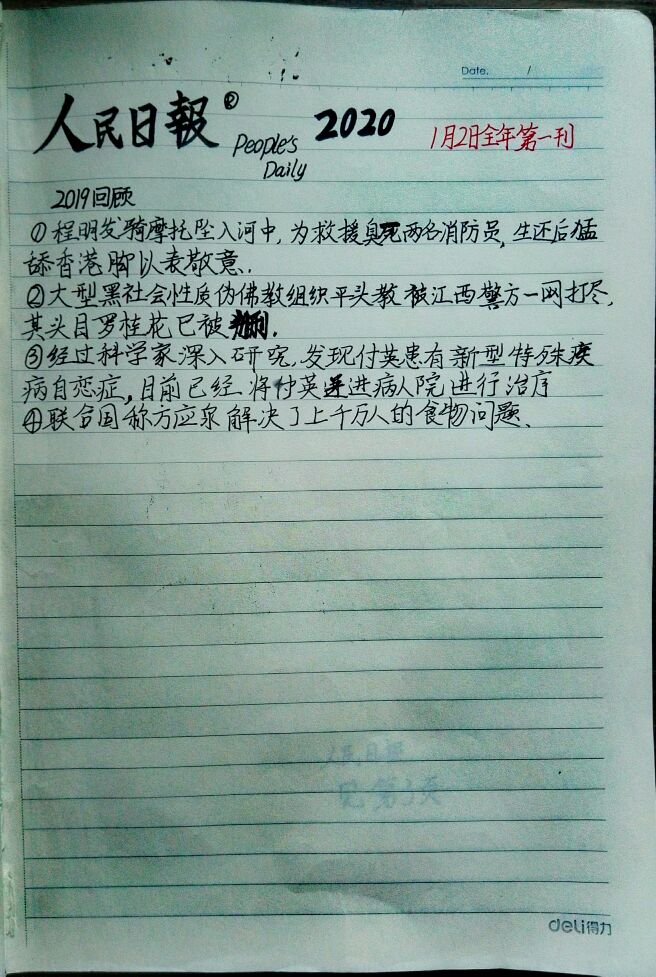 Date.       /
人民日報® People's Daily 2020 1月2日全年第一刊
2019回顾
①程明发骑摩托坠入河中,为救援臭死两名消防员,生还后猛
舔香港脚以表敬意.
②大型黑社会性质伪佛教组织平头教被江西警方一网打尽,
其头目罗桂花已被
③经过科学家深入研究,发现付英患有新型特殊疾
病自恋症,目前已经将付英弄进病人院进行治疗
④联合国称方应泉解决了上千万人的食物问题、
人民日報
见第3页
deli得力